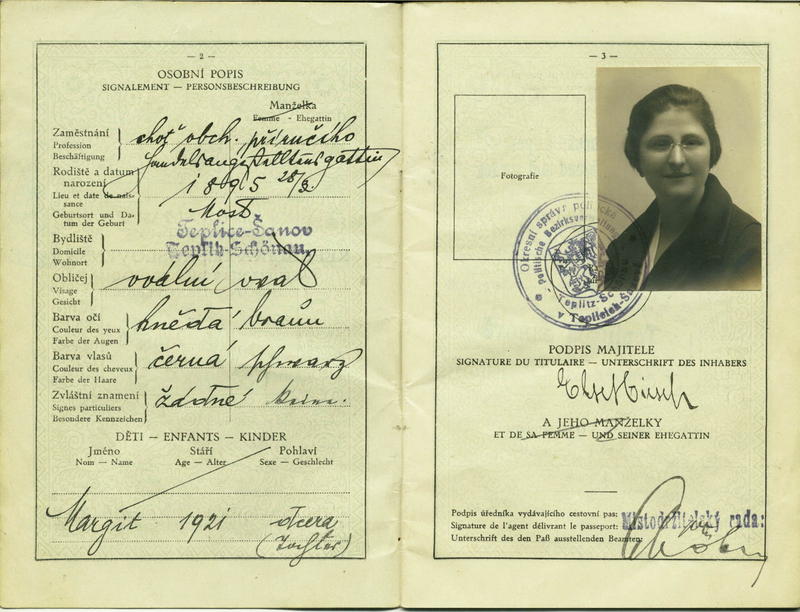 — 2 —
OSOBNÍ POPIS
SIGNALEMENT — PERSONSBESCHREIBUNG
Manželka
Femme - Ehegattin
Zaměstnání
Profession
Beschäftigung
choť obch. příručího
Handelsangestelltensgattin
Rodiště a datum narození
Lieu et date de naissance
Geburtsort und Datum der Geburt
1895 28/3.
Most
Bydliště
Domicile
Wohnort
Teplice-Šanov
Teplitz-Schönau
Obličej
Visage
Gesicht
ovální oval
Barva očí
Couleur des yeux
Farbe der Augen
hnědá braun
Barva vlasů
Couleur des cheveux
Farbe der Haare
černá schwarz
Zvláštní znamení
Signes particuliers
Besondere Kennzeichen
žádné keine.
DĚTI — ENFANTS — KINDER
Jméno Stáří Pohlaví
Nom — Name Age — Alter Sexe — Geschlecht
Margit 1921 dcera
(Tochter)
— 3 —
Fotografie
Okresní správa politická
Politische Bezirksverwaltung
Teplitz-Schönau
v Teplicích-Šanově
PODPIS MAJITELE
SIGNATURE DU TITULAIRE — UNTERSCHRIFT DES INHABERS
A JEHO MANŽELKY
ET DE SA FEMME — UND SEINER EHEGATTIN
Podpis úředníka vydávajícího cestovní pas:
Signature de l'agent délivrant le passeport:
Unterschrift des den Paß ausstellenden Beamten:
Místodržitelský rada: